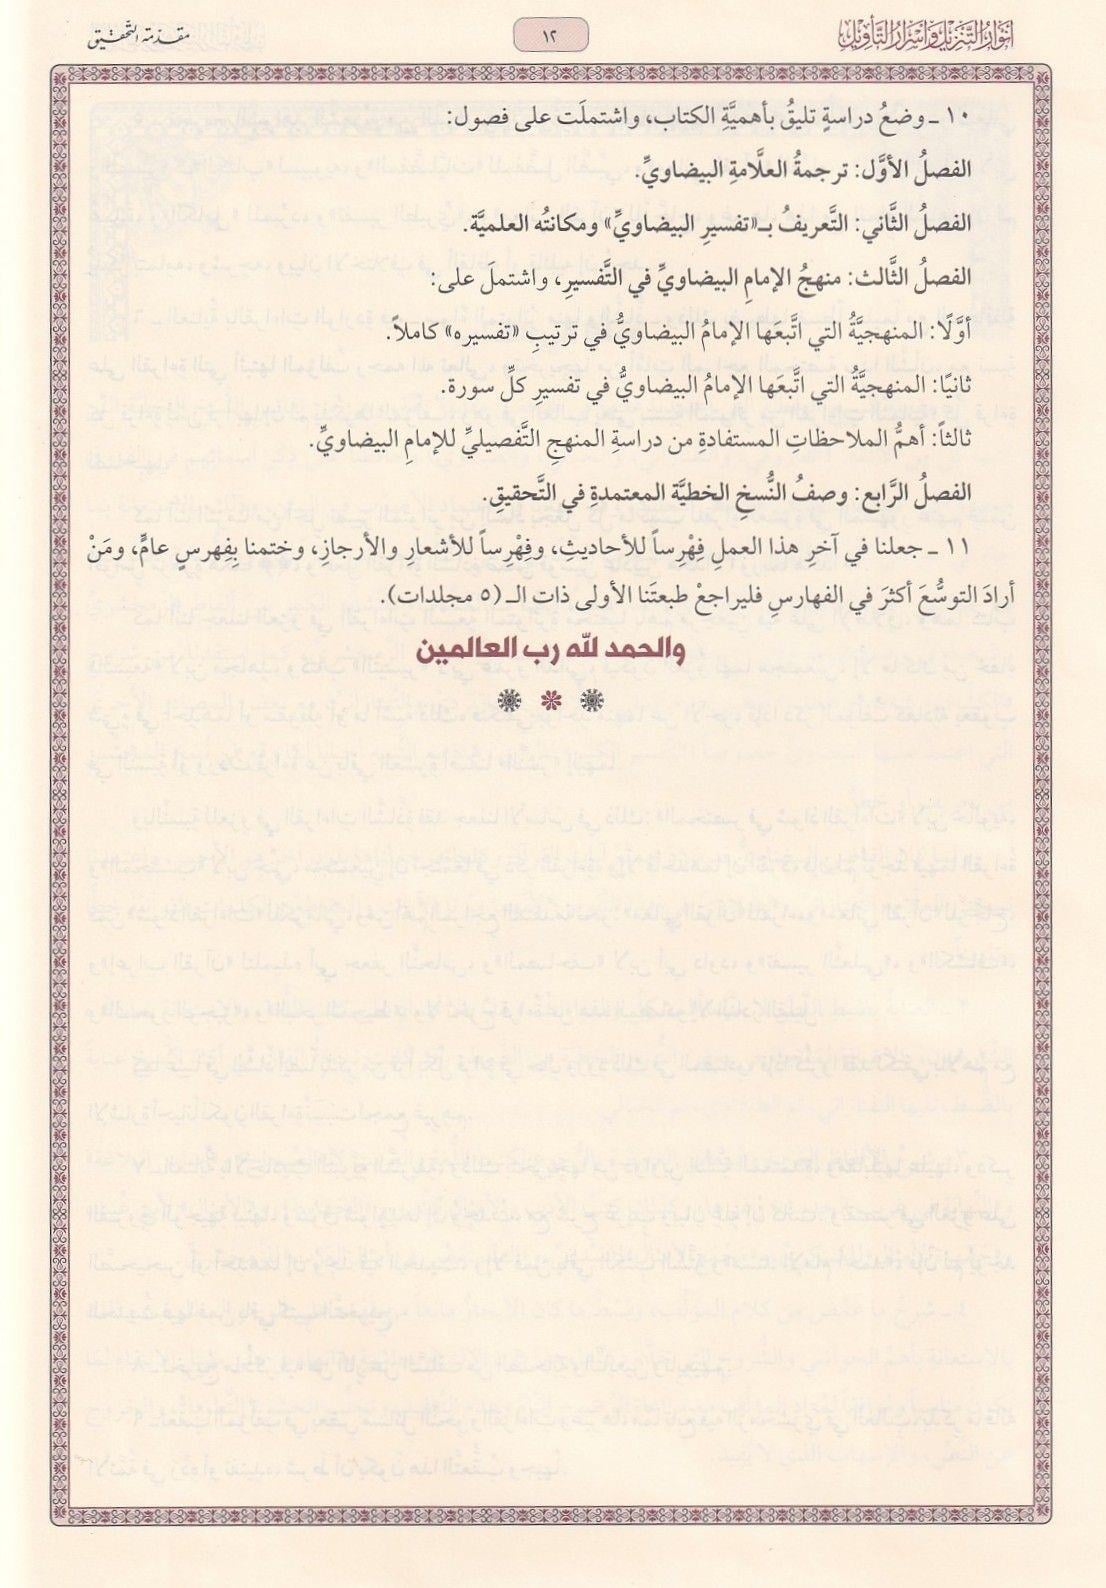 أنوار التنزيل وأسرار التأويل
١٢
مقدمة التحقيق
١٠ ـ وضعُ دراسةٍ تليقُ بأهميَّةِ الكتاب، واشتملَت على فصول:
الفصلُ الأوَّل: ترجمةُ العلَّامةِ البيضاويِّ.
الفصلُ الثَّاني: التَّعريفُ بـ«تفسيرِ البيضاويِّ» ومكانتُه العلميَّة.
الفصلُ الثَّالث: منهجُ الإمامِ البيضاويِّ في التَّفسيرِ، واشتملَ على:
أوَّلًا: المنهجيَّةُ التي اتَّبعَها الإمامُ البيضاويُّ في ترتيبِ «تفسيره» كاملاً.
ثانيًا: المنهجيَّةُ التي اتَّبعَها الإمامُ البيضاويُّ في تفسيرِ كلِّ سورة.
ثالثاً: أهمُّ الملاحظاتِ المستفادةِ من دراسةِ المنهجِ التَّفصيليِّ للإمامِ البيضاويِّ.
الفصلُ الرَّابع: وصفُ النُّسخِ الخطيَّة المعتمدةِ في التَّحقيقِ.
١١ ـ جعلنا في آخرِ هذا العملِ فِهْرِساً للأحاديثِ، وفِهْرِساً للأشعارِ والأرجازِ، وختمنا بِفِهرسٍ عامٍّ، ومَنْ
أرادَ التوسُّعَ أكثرَ في الفهارسِ فليراجعْ طبعتَنا الأولى ذات الـ (٥ مجلدات).
والحمد لله رب العالمين